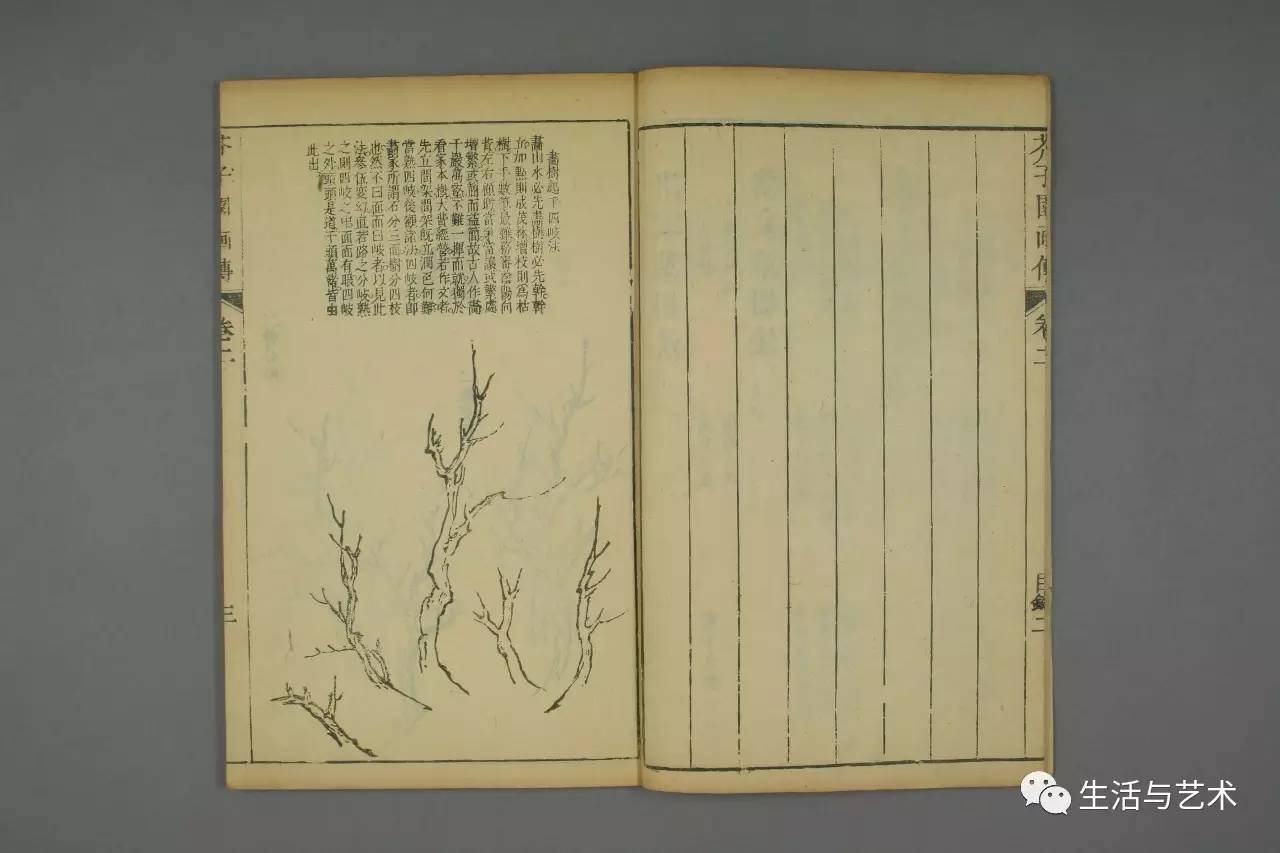 芥子園画傳
卷二
目錄二
畫樹起手四岐法
畫山水必先畫樹樹必先幹幹
立加點則成茂林增枝則爲枯
樹下手數筆最難務審陰陽向
背左右顧盼當爭當讓或繁處
增繁或簡而益簡故古人作畫
千巖萬壑不難一揮而就獨於
看家本樹大費經營若作文者
先立間架間架既立潤色何難
當熟四岐後觀諸法四岐者即
畫家所謂石分三面樹分四枝
也然不曰面而曰岐者以見此
法參伍變幻直若路之分岐熟
之則四岐之中面面有眼四岐
之外頭頭是道千頭萬緒皆由
此出
芥子園画傳
卷二
三
生活与艺术